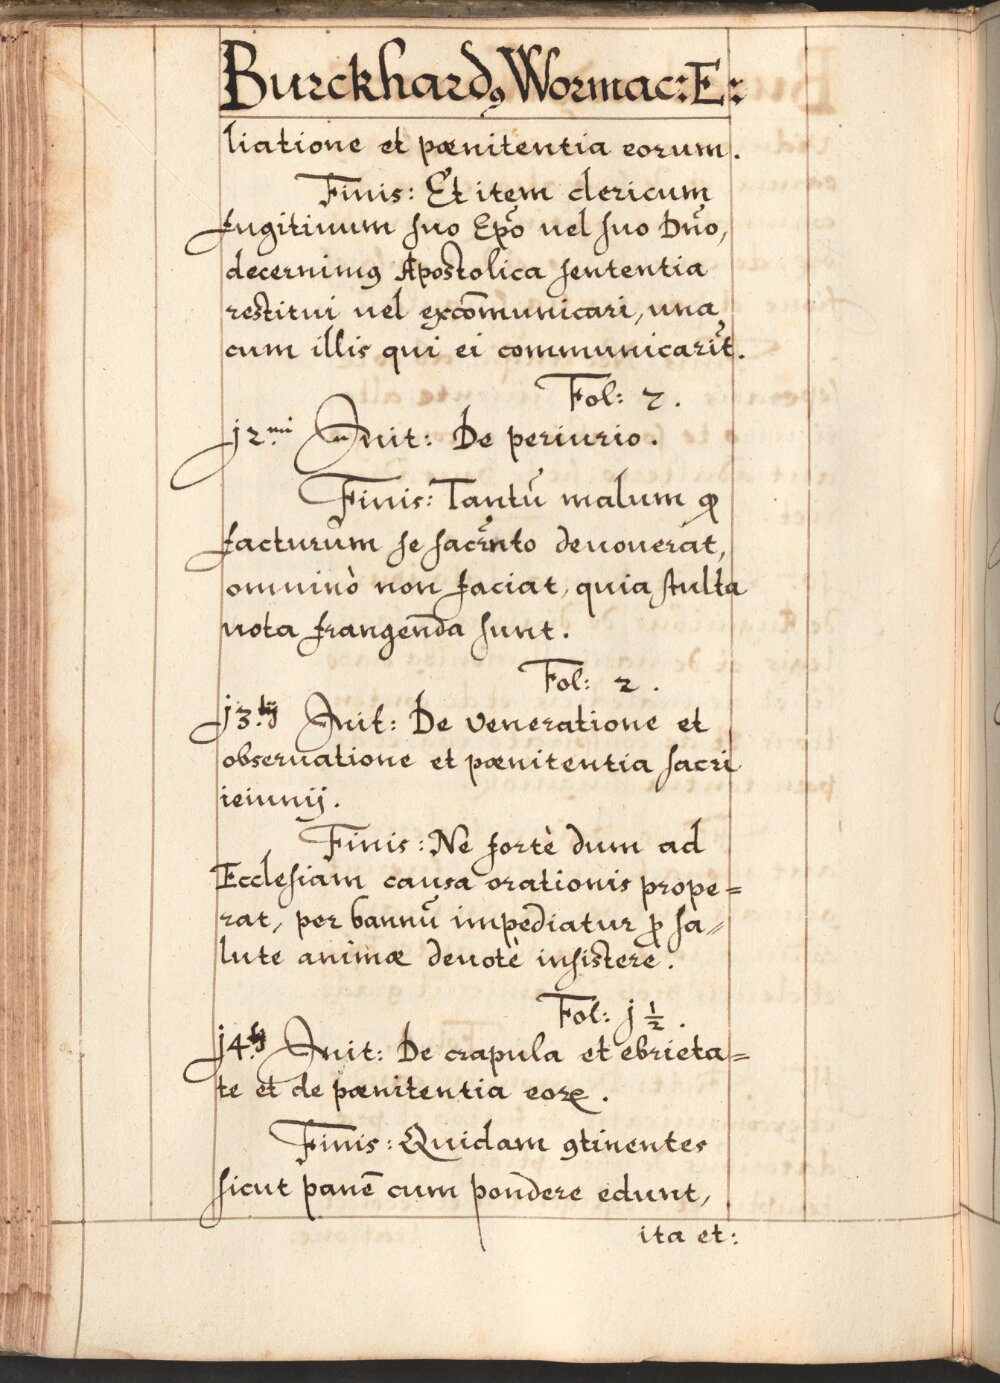 Burckhardꝰ Wormac: E:
liatione et pœnitentia eorum.
Finis: Et item clericum
fugitiuum suo Ep̃o uel suo Dño,
decernimꝰ Apostolica sententia
restitui uel excōmunicari, una
cum illis qui ei communicarũt.
Fol: 2.
j2.mi Init: De periurio.
Finis: Tantũ malum qđ
facturum se sacr̃nto deuouerat,
omninò non faciat, quia stulta
uota frangenda sunt.
Fol: 2.
j3.tij Init: De veneratione et
obseruatione et pœnitentia sacri
ieiunij.
Finis: Ne fortè dum ad
Ecclesiam causa orationis prope=
rat, per bannũ impediatur ꝓ sa=
lute animæ deuotè insistere.
Fol: j ½.
j4.tj Init: De crapula et ebrieta=
te et de pœnitentia eoꝝ.
Finis: Quidam ꝯtinentes
sicut panē cum pondere edunt,
ita et: